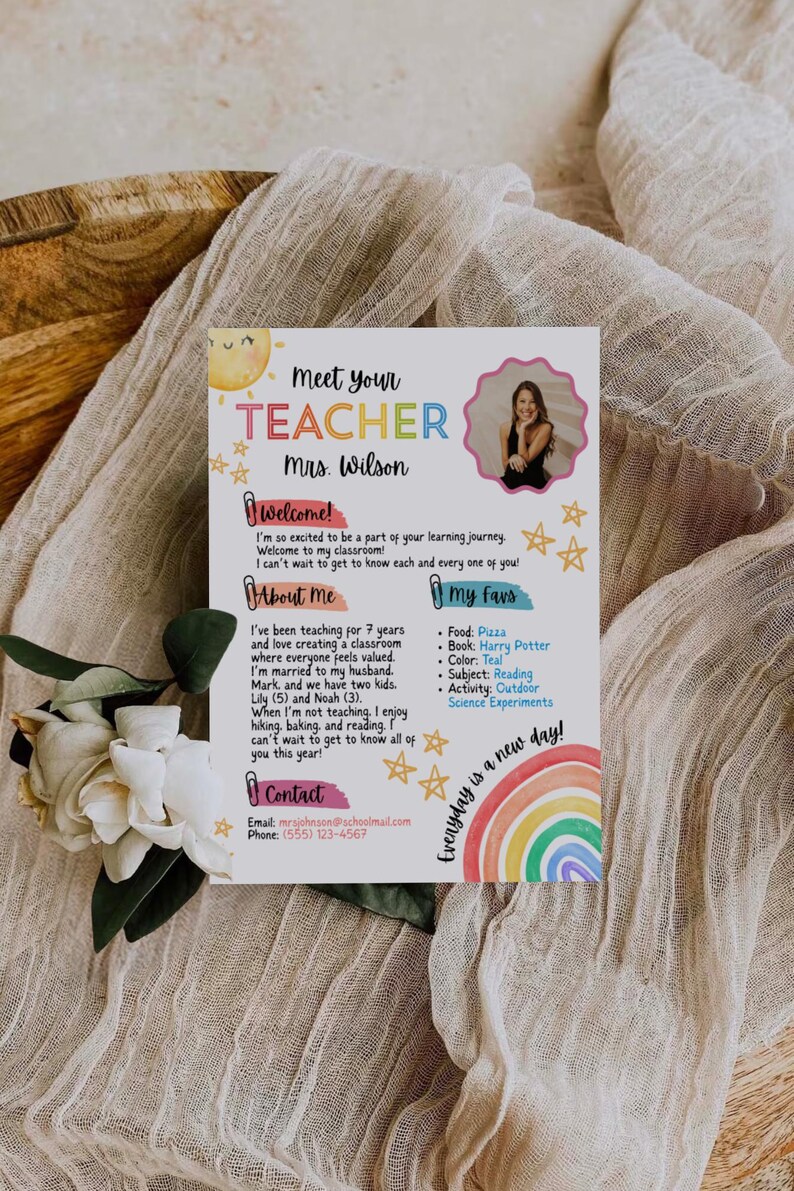 Meet Your
TEACHER
Mrs. Wilson
Welcome!
I'm so excited to be a part of your learning journey.
Welcome to my classroom!
I can't wait to get to know each and every one of you!
About Me
I've been teaching for 7 years
and love creating a classroom
where everyone feels valued.
I'm married to my husband,
Mark, and we have two kids,
Lily (5) and Noah (3).
When I'm not teaching, I enjoy
hiking, baking, and reading. I
can't wait to get to know all of
you this year!
My Favs
• Food: Pizza
• Book: Harry Potter
• Color: Teal
• Subject: Reading
• Activity: Outdoor
Science Experiments
Contact
Email: mrsjohnson@schoolmail.com
Phone: (555) 123-4567
Everyday is a new day!